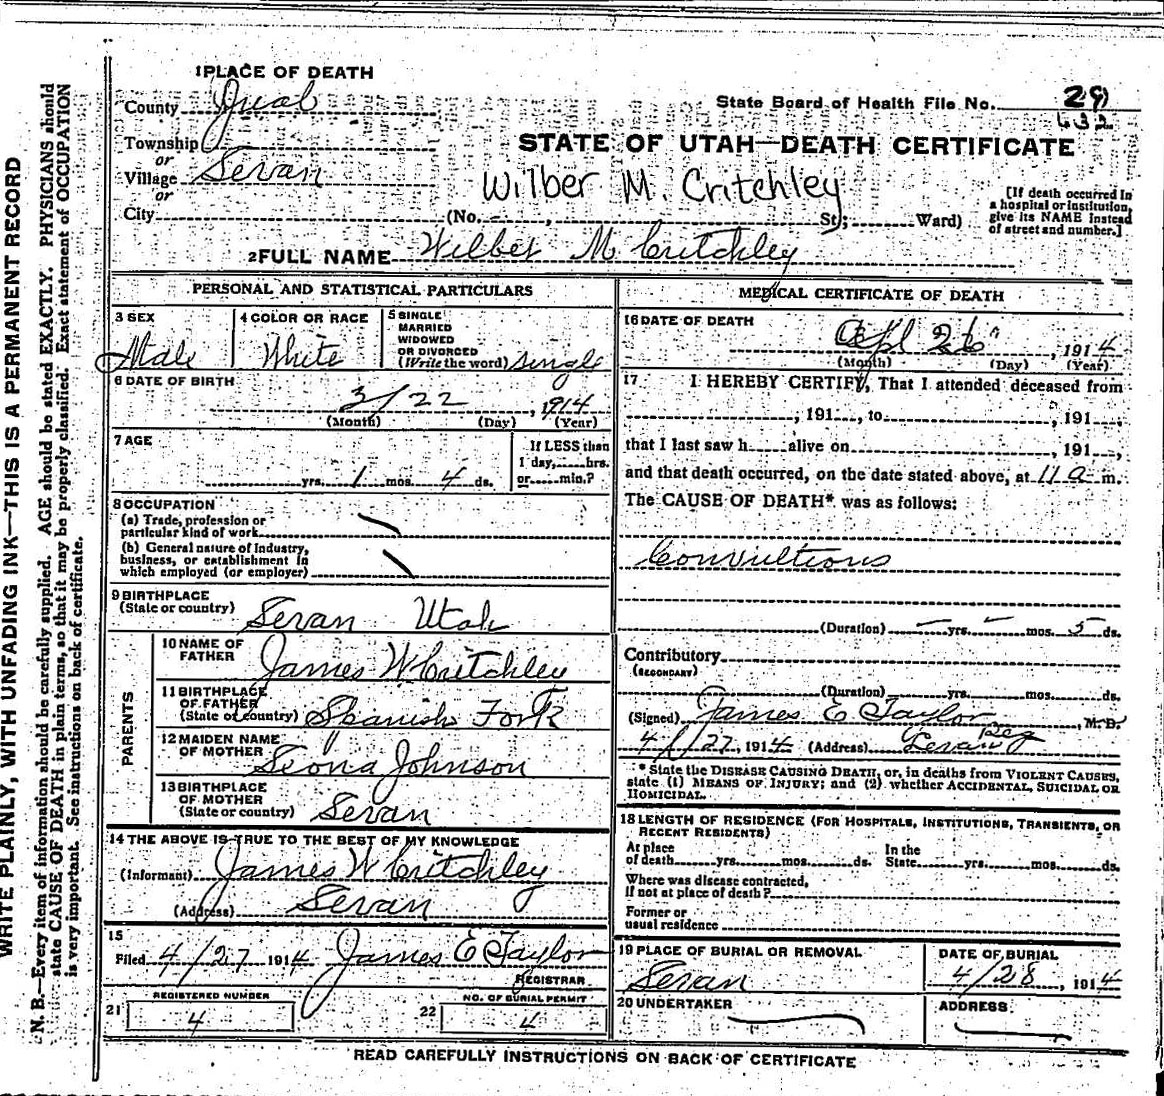 WRITE PLAINLY, WITH UNFADING INK—THIS IS A PERMANENT RECORD
N. B.—Every item of information should be carefully supplied. AGE should be stated EXACTLY. PHYSICIANS should
state CAUSE OF DEATH in plain terms, so that it may be properly classified. Exact statement of OCCUPATION
is very important. See instructions on back of certificate.
1 PLACE OF DEATH
County Juab
State Board of Health File No. 29
432
Township
or
Village Levan
or
City
STATE OF UTAH—DEATH CERTIFICATE
Wilber M. Critchley
(No. , St; Ward)
[If death occurred in
a hospital or institution,
give its NAME instead
of street and number.]
2 FULL NAME Wilber M Critchley
PERSONAL AND STATISTICAL PARTICULARS
3 SEX
Male
4 COLOR OR RACE
White
5 SINGLE
MARRIED
WIDOWED
OR DIVORCED
(Write the word) single
6 DATE OF BIRTH
3/22, 1914
(Month) (Day) (Year)
7 AGE
yrs. 1 mos. 4 ds.
If LESS than
1 day, hrs.
or min.?
8 OCCUPATION
(a) Trade, profession or
particular kind of work
(b) General nature of Industry,
business, or establishment in
which employed (or employer)
9 BIRTHPLACE
(State or country) Levan Utah
PARENTS
10 NAME OF
FATHER James W Critchley
11 BIRTHPLACE
OF FATHER
(State or country) Spanish Fork
12 MAIDEN NAME
OF MOTHER Leona Johnson
13 BIRTHPLACE
OF MOTHER
(State or country) Levan
14 THE ABOVE IS TRUE TO THE BEST OF MY KNOWLEDGE
(Informant) James W Critchley
(Address) Levan
15
Filed 4/27 1914 James E Taylor
REGISTRAR
21 REGISTERED NUMBER
4
22 NO. OF BURIAL PERMIT
4
MEDICAL CERTIFICATE OF DEATH
16 DATE OF DEATH
Apl 26", 1914
(Month) (Day) (Year)
17 I HEREBY CERTIFY, That I attended deceased from
, 191 , to , 191 ,
that I last saw h alive on , 191 ,
and that death occurred, on the date stated above, at 11 a m.
The CAUSE OF DEATH* was as follows:
Convultions
(Duration) yrs. mos. 5 ds.
Contributory
(SECONDARY)
(Duration) yrs. mos. ds.
(Signed) James E Taylor, M.D.
Reg
4/27, 1914 (Address) Levan
* State the DISEASE CAUSING DEATH, or, in deaths from VIOLENT CAUSES,
state (1) MEANS OF INJURY; and (2) whether ACCIDENTAL, SUICIDAL OR
HOMICIDAL.
18 LENGTH OF RESIDENCE (FOR HOSPITALS, INSTITUTIONS, TRANSIENTS, OR
RECENT RESIDENTS)
At place
of death yrs. mos. ds.
In the
State yrs. mos. ds.
Where was disease contracted,
if not at place of death?
Former or
usual residence
19 PLACE OF BURIAL OR REMOVAL
Levan
DATE OF BURIAL
4/28, 1914
20 UNDERTAKER
ADDRESS
READ CAREFULLY INSTRUCTIONS ON BACK OF CERTIFICATE